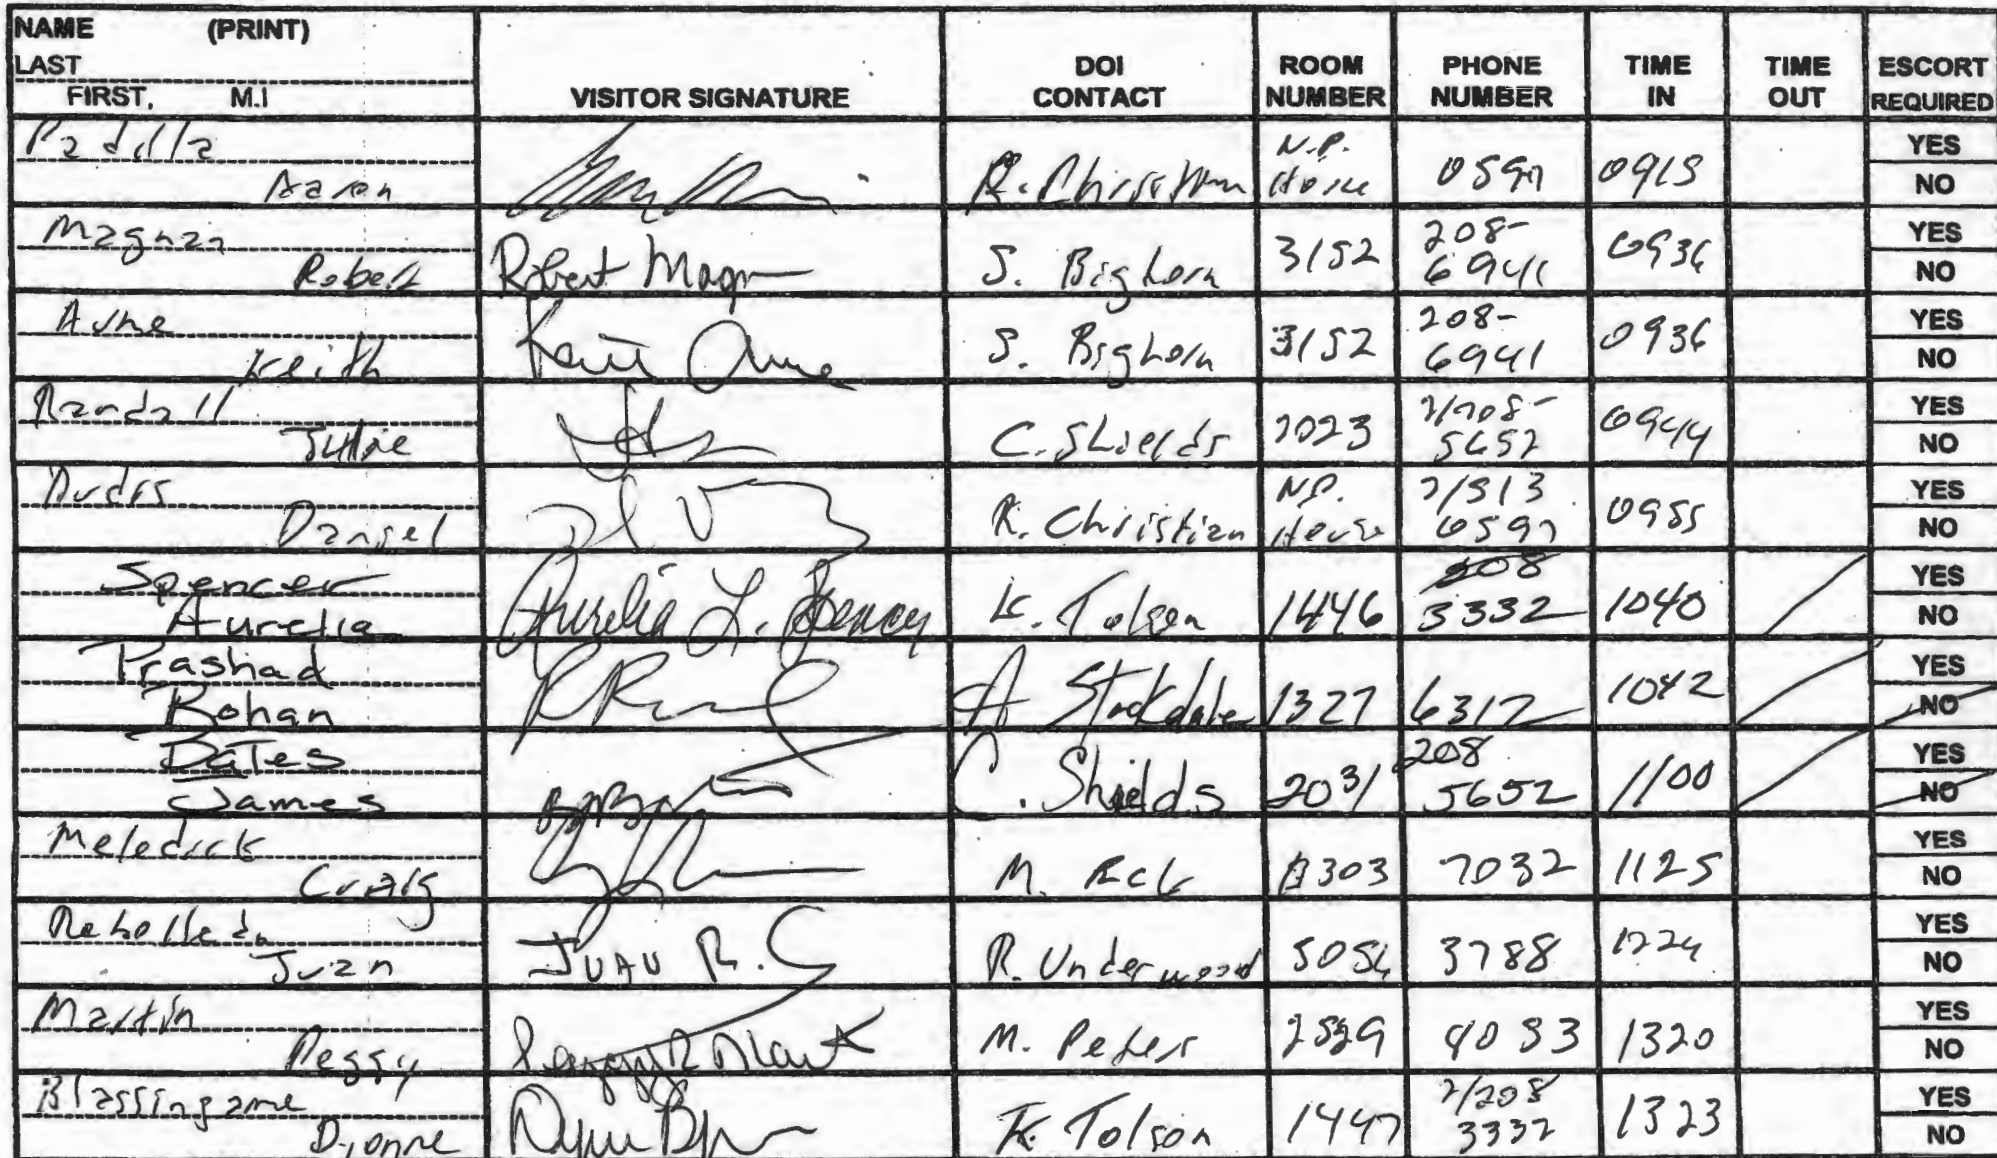 NAME (PRINT)
LAST
FIRST, M.I
VISITOR SIGNATURE
DOI
CONTACT
ROOM
NUMBER
PHONE
NUMBER
TIME
IN
TIME
OUT
ESCORT
REQUIRED
Padilla
Aaron
R. Christian
N.P.
House
0597
0915
YES
NO
Magnan
Robert
Robert Magn
S. Bighorn
3152
208-
6941
0936
YES
NO
Aune
Keith
Keith Aune
S. Bighorn
3152
208-
6941
0936
YES
NO
Randall
Julie
C. Shields
2023
2/208-
5652
0944
YES
NO
Daniel
R. Christian
N.P.
House
2/513
0597
0955
YES
NO
Spencer
Aurelia
Aurelia L. Spencer
K. Tolson
1446
208
3332
1040
YES
NO
Prashad
Rohan
A Stockdale
1327
6317
1042
YES
NO
Bates
James
C. Shields
2031
208
5652
1100
YES
NO
Meledick
Craig
M.
303
7032
1125
YES
NO
Rebolledo
Juan
JUAN R.
R. Underwood
3788
1224
YES
NO
Martin
Peggy
M. Peters
4083
1320
YES
NO
Blassingame
Dionne
K. Tolson
1447
2/208
3332
1323
YES
NO